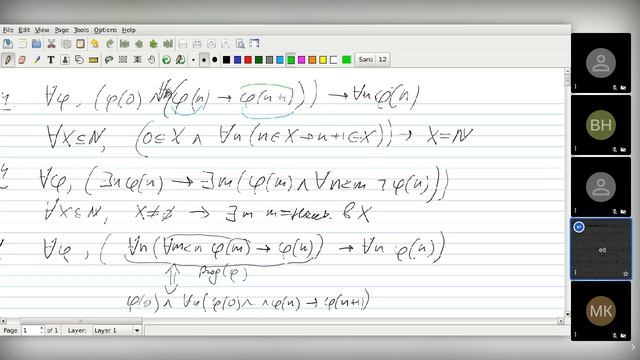 File Edit View Page Tools Options Help
Sans 12
∀φ, (φ(0) ∧ ∀n(φ(n) → φ(n+1))) → ∀nφ(n)
∀X⊆ℕ, (0∈X ∧ ∀n(n∈X→n+1∈X)) → X=ℕ
∀φ, (∃nφ(n) → ∃m(φ(m) ∧ ∀n<m ¬φ(n)))
∀X⊆ℕ, X≠∅ → ∃m m=наим. в X
∀φ, (∀n(∀m<n φ(m) → φ(n)) → ∀n φ(n))
Prog(φ)
φ(0) ∧ ∀n(φ(0)∧ ∧φ(n) → φ(n+1))
BH
ed
MK
Page 1 of 1 Layer: Layer 1